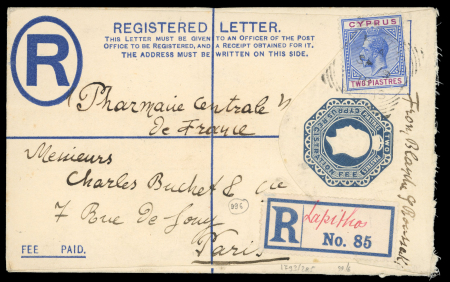 REGISTERED LETTER.
THIS LETTER MUST BE GIVEN TO AN OFFICER OF THE POST
OFFICE TO BE REGISTERED, AND A RECEIPT OBTAINED FOR IT.
THE ADDRESS MUST BE WRITTEN ON THIS SIDE.
R
CYPRUS
TWO PIASTRES
"Pharmacie Centrale"
de France
Messieurs
Charles Buchet & Cie
7 Rue de Jouy
Paris
FEE PAID.
R
Lapithos
No. 85
FEE
From